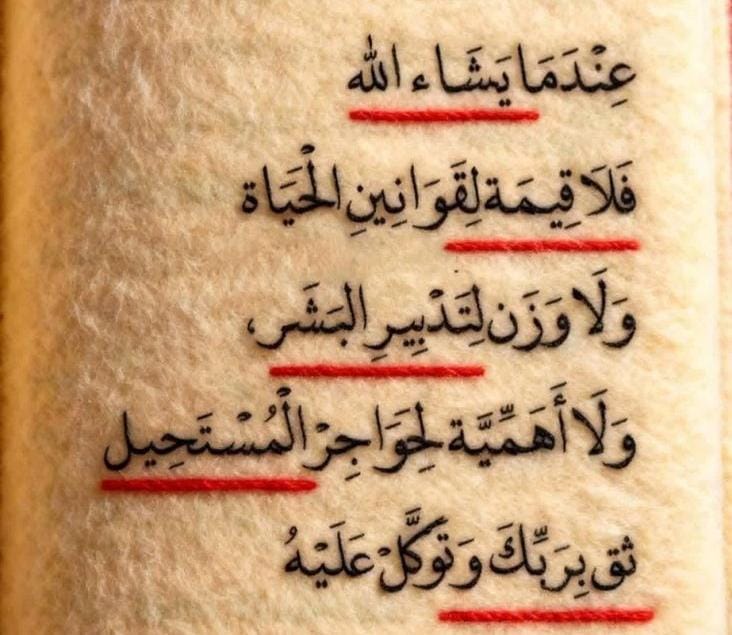 عِنْدَمَا يَشَاء الله
فَلَا قِيمَة لِقَوَانِينِ الْحَيَاة
وَلَا وَزَن لِتَدْبِيرِ البَشَر،
وَلَا أَهَمِّيَّة لِحَوَاجِزْ الْمُسْتَحِيل
ثق بِرَبِّكَ وَتَوَكَّلْ عَلَيْهُ